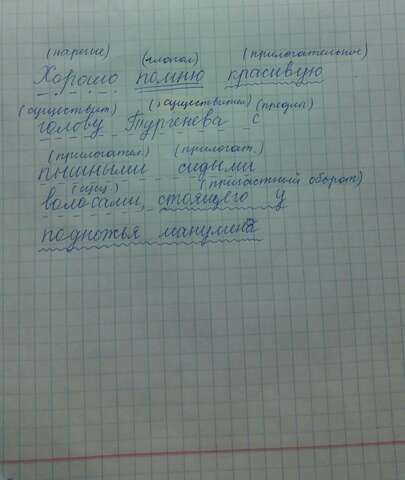 (наречие) (глагол) (прилогательное)
Хорошо помню красивую
(существит) (существител) (предлп)
голову Тургенева с
(прилогател) (прилогат.)
пышными сидыми
(сущ.) (причастный оборот)
волосами, стоящего у
подножья манумина